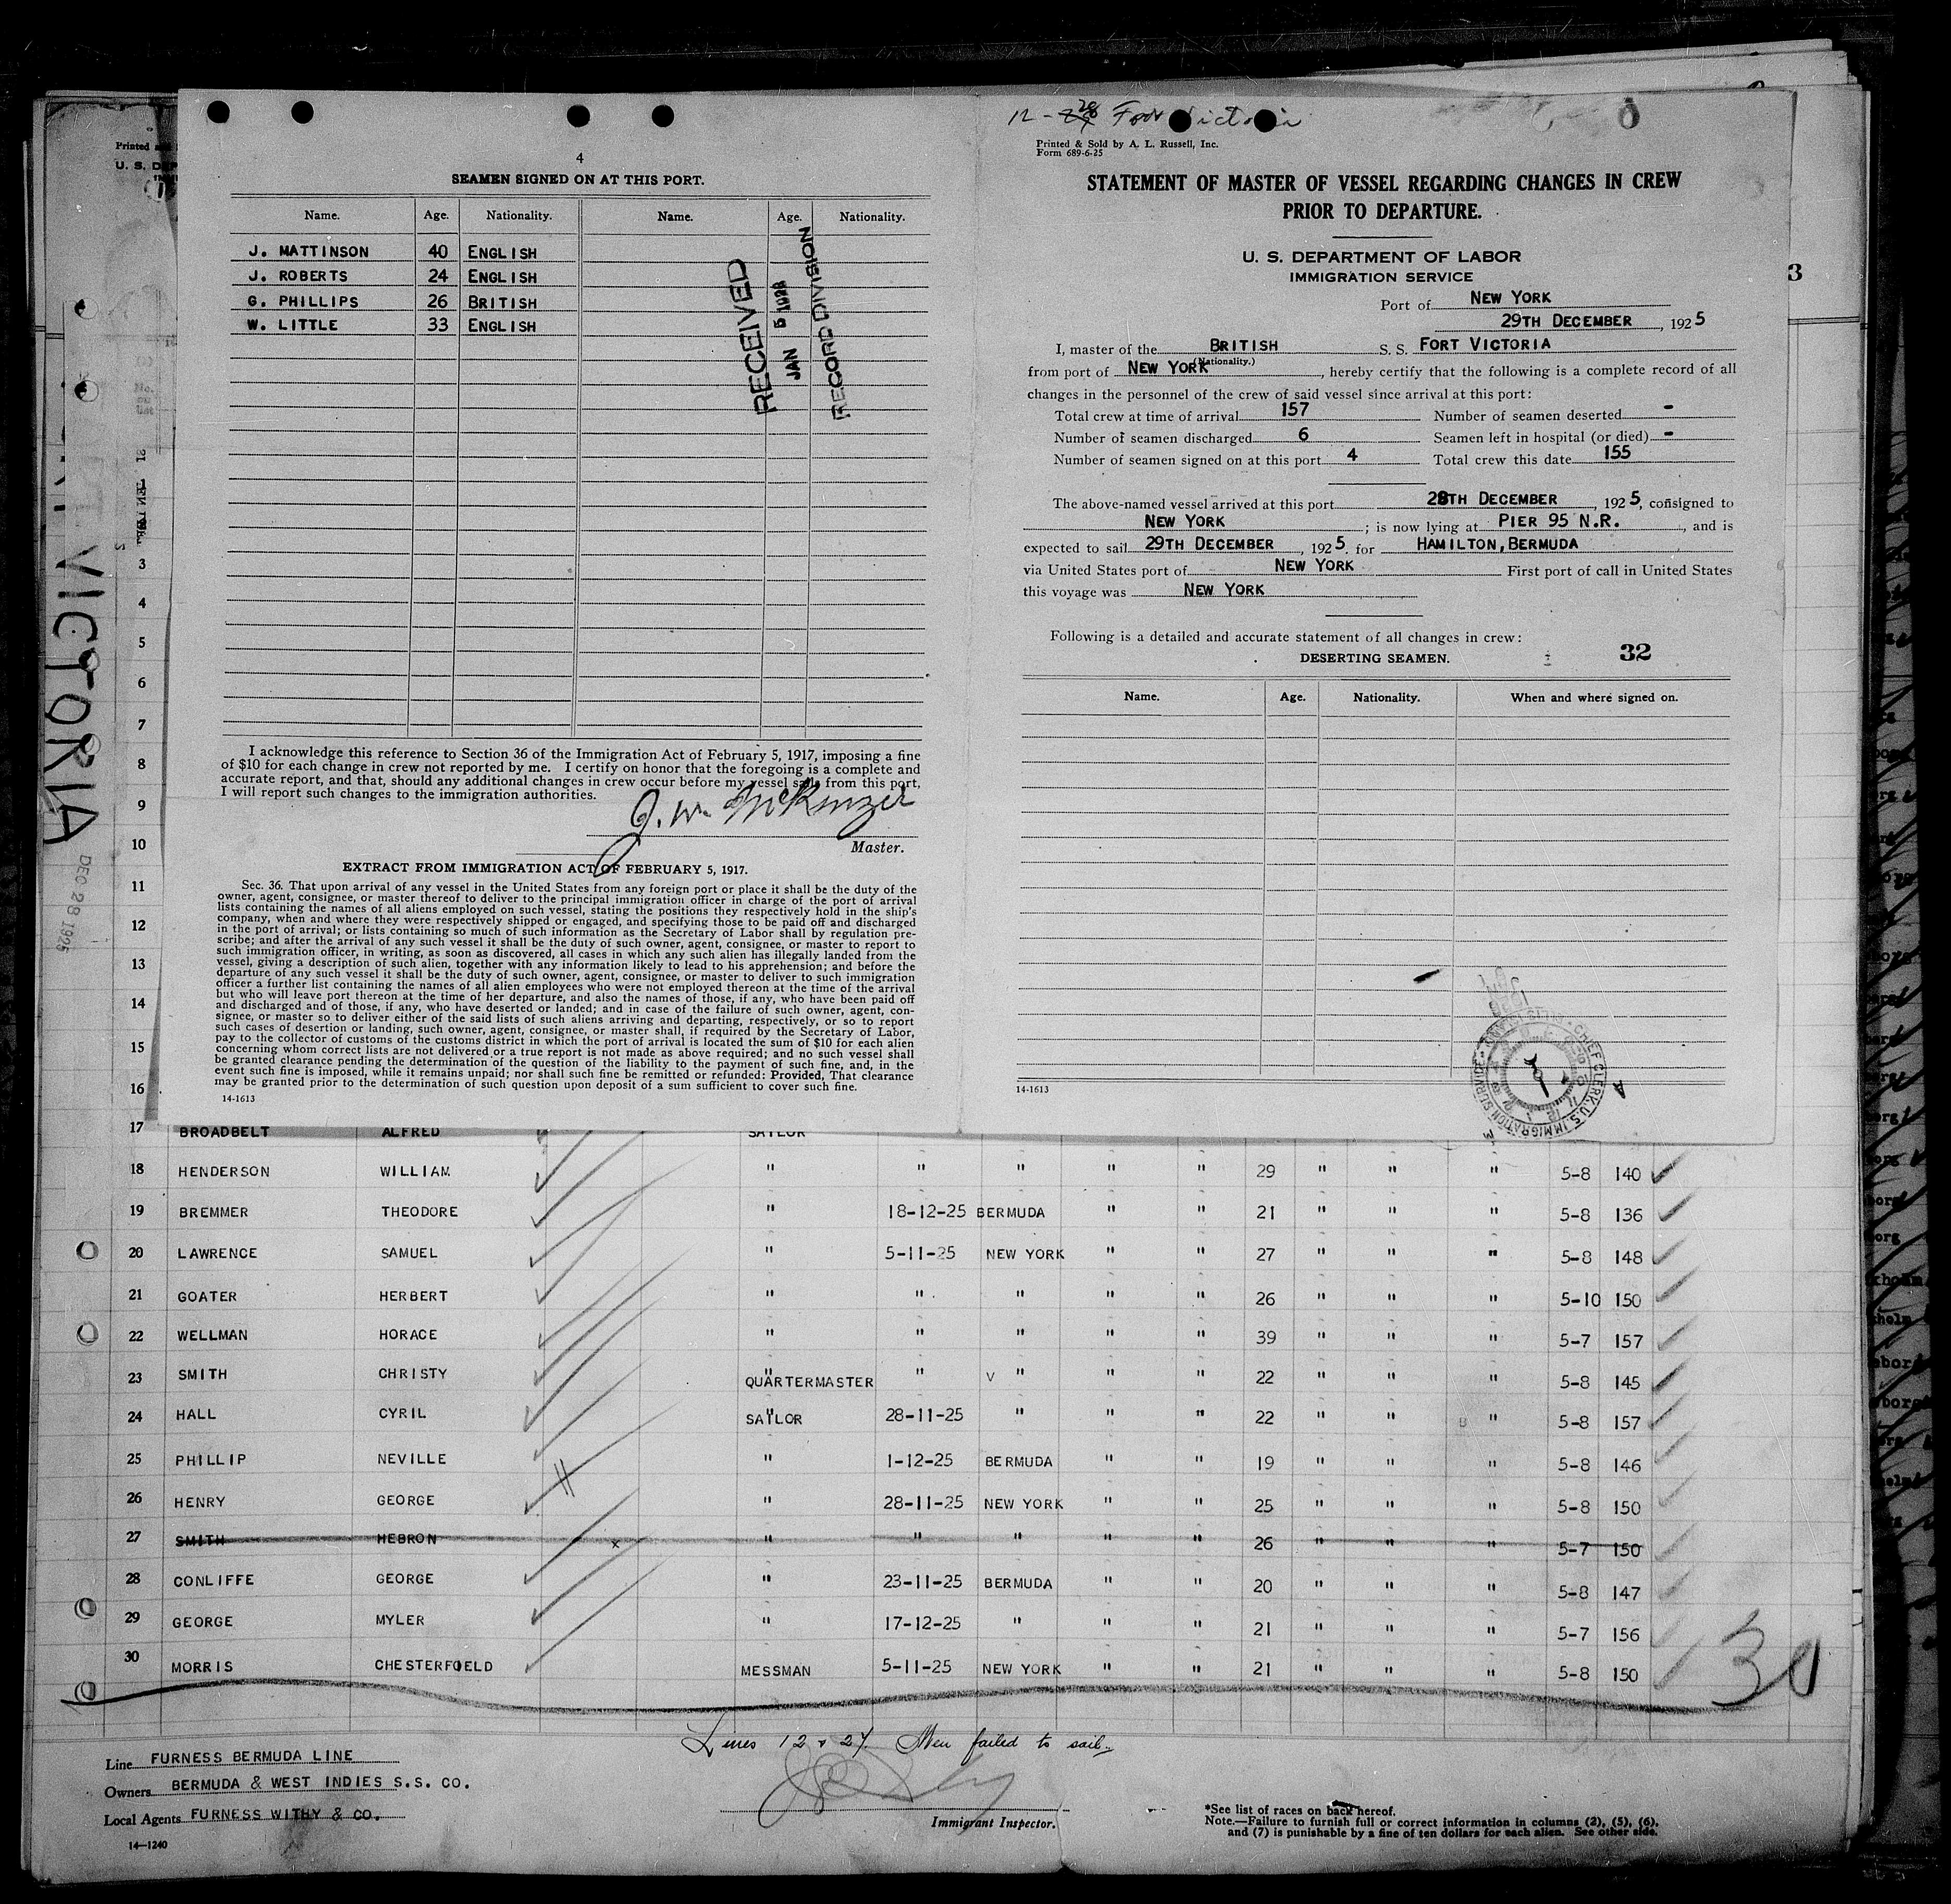 4
SEAMEN SIGNED ON AT THIS PORT.
Name. Age. Nationality. Name. Age. Nationality.
J. MATTINSON 40 ENGLISH
J. ROBERTS 24 ENGLISH
G. PHILLIPS 26 BRITISH
W. LITTLE 33 ENGLISH
RECEIVED
JAN 5 1926
RECORD DIVISION
I acknowledge this reference to Section 36 of the Immigration Act of February 5, 1917, imposing a fine
of $10 for each change in crew not reported by me. I certify on honor that the foregoing is a complete and
accurate report, and that, should any additional changes in crew occur before my vessel sails from this port,
I will report such changes to the immigration authorities.
Master.
EXTRACT FROM IMMIGRATION ACT OF FEBRUARY 5, 1917.
Sec. 36. That upon arrival of any vessel in the United States from any foreign port or place it shall be the duty of the
owner, agent, consignee, or master thereof to deliver to the principal immigration officer in charge of the port of arrival
lists containing the names of all aliens employed on such vessel, stating the positions they respectively hold in the ship's
company, when and where they were respectively shipped or engaged, and specifying those to be paid off and discharged
in the port of arrival; or lists containing so much of such information as the Secretary of Labor shall by regulation pre-
scribe; and after the arrival of any such vessel it shall be the duty of such owner, agent, consignee, or master to report to
such immigration officer, in writing, as soon as discovered, all cases in which any such alien has illegally landed from the
vessel, giving a description of such alien, together with any information likely to lead to his apprehension; and before the
departure of any such vessel it shall be the duty of such owner, agent, consignee, or master to deliver to such immigration
officer a further list containing the names of all alien employees who were not employed thereon at the time of the arrival
but who will leave port thereon at the time of her departure, and also the names of those, if any, who have been paid off
and discharged and of those, if any, who have deserted or landed; and in case of the failure of such owner, agent, con-
signee, or master so to deliver either of the said lists of such aliens arriving and departing, respectively, or so to report
such cases of desertion or landing, such owner, agent, consignee, or master shall, if required by the Secretary of Labor,
pay to the collector of customs of the customs district in which the port of arrival is located the sum of $10 for each alien
concerning whom correct lists are not delivered or a true report is not made as above required; and no such vessel shall
be granted clearance pending the determination of the question of the liability to the payment of such fine, and, in the
event such fine is imposed, while it remains unpaid; nor shall such fine be remitted or refunded: Provided, That clearance
may be granted prior to the determination of such question upon deposit of a sum sufficient to cover such fine.
14-1613
12 - 28 Fort Victoria
Printed & Sold by A. L. Russell, Inc.
Form 689-6-25
STATEMENT OF MASTER OF VESSEL REGARDING CHANGES IN CREW
PRIOR TO DEPARTURE.
U. S. DEPARTMENT OF LABOR
IMMIGRATION SERVICE
Port of NEW YORK
29TH DECEMBER, 1925
I, master of the BRITISH S. S. FORT VICTORIA
(Nationality.)
from port of NEW YORK, hereby certify that the following is a complete record of all
changes in the personnel of the crew of said vessel since arrival at this port:
Total crew at time of arrival 157 Number of seamen deserted -
Number of seamen discharged 6 Seamen left in hospital (or died) -
Number of seamen signed on at this port 4 Total crew this date 155
The above-named vessel arrived at this port 28TH DECEMBER, 1925, consigned to
NEW YORK; is now lying at PIER 95 N.R., and is
expected to sail 29TH DECEMBER, 1925. for HAMILTON, BERMUDA
via United States port of NEW YORK First port of call in United States
this voyage was NEW YORK
Following is a detailed and accurate statement of all changes in crew:
DESERTING SEAMEN. 32
Name. Age. Nationality. When and where signed on.
14-1613
CHIEF CLERK, U.S. IMMIGRATION SERVICE
3
Printed
U. S. DEP
VICTORIA
DEC 28 1925
3
4
5
6
7
8
9
10
11
12
13
14
15
16
17 BROADBELT ALFRED SAILOR
18 HENDERSON WILLIAM " " " " " 29 " " " 5-8 140
19 BREMMER THEODORE " 18-12-25 BERMUDA " " 21 " " " 5-8 136
20 LAWRENCE SAMUEL " 5-11-25 NEW YORK " " 27 " " " 5-8 148
21 GOATER HERBERT " " " " " 26 " " " 5-10 150
22 WELLMAN HORACE " " " " " 39 " " " 5-7 157
23 SMITH CHRISTY QUARTERMASTER " V " " " 22 " " " 5-8 145
24 HALL CYRIL SAILOR 28-11-25 " " " 22 " " " 5-8 157
25 PHILLIP NEVILLE " 1-12-25 BERMUDA " " 19 " " " 5-8 146
26 HENRY GEORGE " 28-11-25 NEW YORK " " 25 " " " 5-8 150
27 SMITH HEBRON x " " " " " 26 " " " 5-7 150
28 CONLIFFE GEORGE " 23-11-25 BERMUDA " " 20 " " " 5-8 147
29 GEORGE MYLER " 17-12-25 " " " 21 " " " 5-7 156
30 MORRIS CHESTERFIELD MESSMAN 5-11-25 NEW YORK " " 21 " " " 5-8 150
30
Lines 12 & 27. Men failed to sail.
Line FURNESS BERMUDA LINE
Owners BERMUDA & WEST INDIES S.S. CO.
Local Agents FURNESS WITHY & CO.
14-1240
Immigrant Inspector.
*See list of races on back hereof.
Note.—Failure to furnish full or correct information in columns (2), (5), (6),
and (7) is punishable by a fine of ten dollars for each alien. See other side.